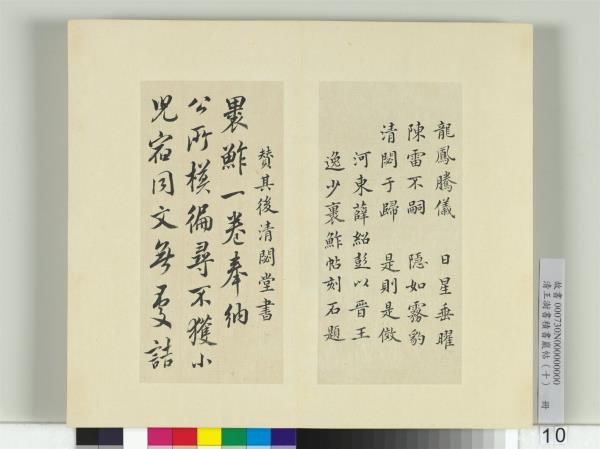 龍鳳騰儀　日星垂曜
陳雷不嗣　隱如霧豹
清閟于歸　是則是傚
河東薛紹彭以晉王
逸少裹鮓帖刻石題
贊其後清閟堂書
裹鮓一卷奉納
公所模徧尋不獲小
兒宕同文無更詰
故書000730N000000000
清王澍書積書巖帖（十）　冊
10